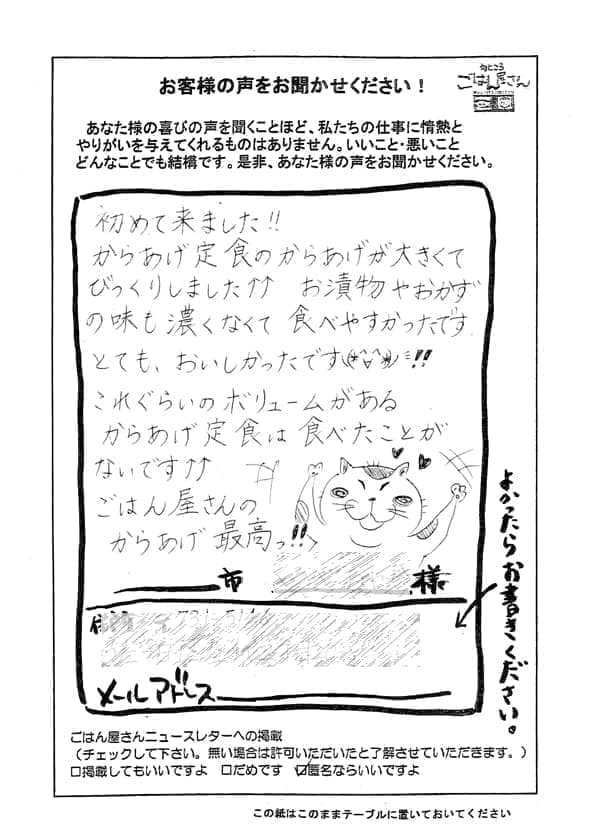 お客様の声をお聞かせください！
旬どころ
ごはん屋さん
あなた様の喜びの声を聞くことほど、私たちの仕事に情熱と
やりがいを与えてくれるものはありません。いいこと・悪いこと
どんなことでも結構です。是非、あなた様の声をお聞かせください。
初めて来ました!!
からあげ定食のからあげが大きくて
びっくりしました↑↑ お漬物やおかず
の味も濃くなくて食べやすかったです
とても、おいしかったです(*^^*)ミ!!
これぐらいのボリュームがある
からあげ定食は食べたことが
ないです↑↑
ごはん屋さんの
からあげ最高っ!!
市 様
メールアドレス
よかったらお書きください。
ごはん屋さんニュースレターへの掲載
（チェックして下さい。無い場合は許可いただいたと了解させていただきます。）
□掲載してもいいですよ □だめです ☑匿名ならいいですよ
この紙はこのままテーブルに置いておいてください